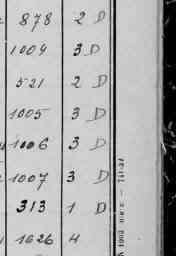 878 2 D
1004 3 D
521 2 D
1005 3 D
1006 3 D
1007 3 D
313 1 D
1026 4